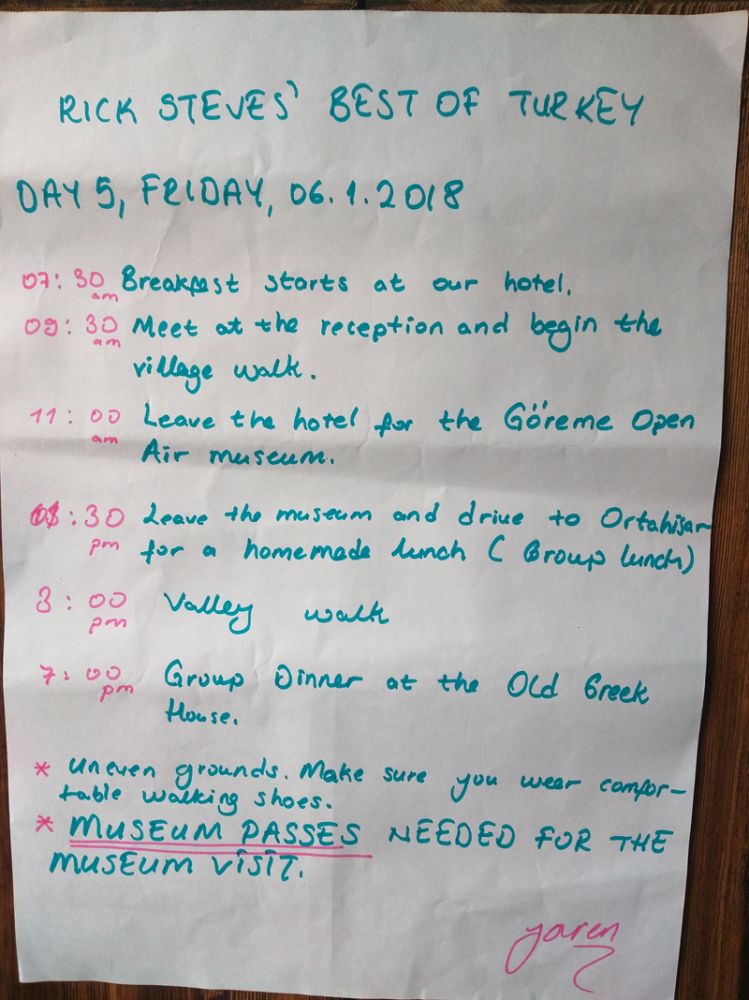 RICK STEVES' BEST OF TURKEY
DAY 5, FRIDAY, 06.1.2018
07:30 am Breakfast starts at our hotel.
09:30 am Meet at the reception and begin the
village walk.
11:00 am Leave the hotel for the Göreme Open
Air museum.
:30 pm Leave the museum and drive to Ortahisar
for a homemade lunch (Group lunch)
3:00 pm Valley walk
7:00 pm Group Dinner at the Old Greek
House.
* Uneven grounds. Make sure you wear comfor-
table walking shoes.
* MUSEUM PASSES NEEDED FOR THE
MUSEUM VİSİT.
yaren